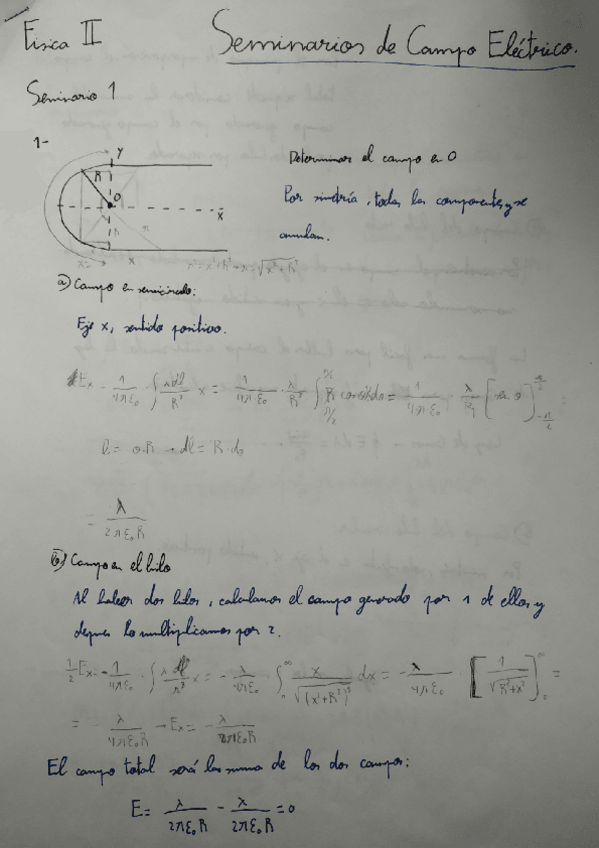 Física II
Seminarios de Campo Eléctrico.
Seminario 1
1-
y
R
O
x
R
r
x
r²=x²+R²→r=√(x²+R²)
Determinar el campo en O
Por simetría, todas las componentes y se
anulan.
a) Campo en semicírculo:
Eje x, sentido positivo.
Ex = 1/4πε₀ ∫ λdl/R² x = 1/4πε₀ · λ/R² ∫ R cosθdθ = 1/4πε₀ · λ/R [sen θ] =
l = θ·R → dl = R·dθ
= λ/2πε₀R
b) Campo en el hilo
Al haber dos hilos, calculamos el campo generado por 1 de ellos y
depues lo multiplicamos por 2.
1/2 Ex = -1/4πε₀ · ∫ λdl/r² x = - λ/4πε₀ · ∫₀^∞ x/√(x²+R²)³ dx = - λ/4πε₀ · [1/√(R²+x²)]₀^∞ =
= λ/4πε₀R → Ex = - λ/2πε₀R
El campo total será la suma de los dos campos:
E = λ/2πε₀R - λ/2πε₀R = 0